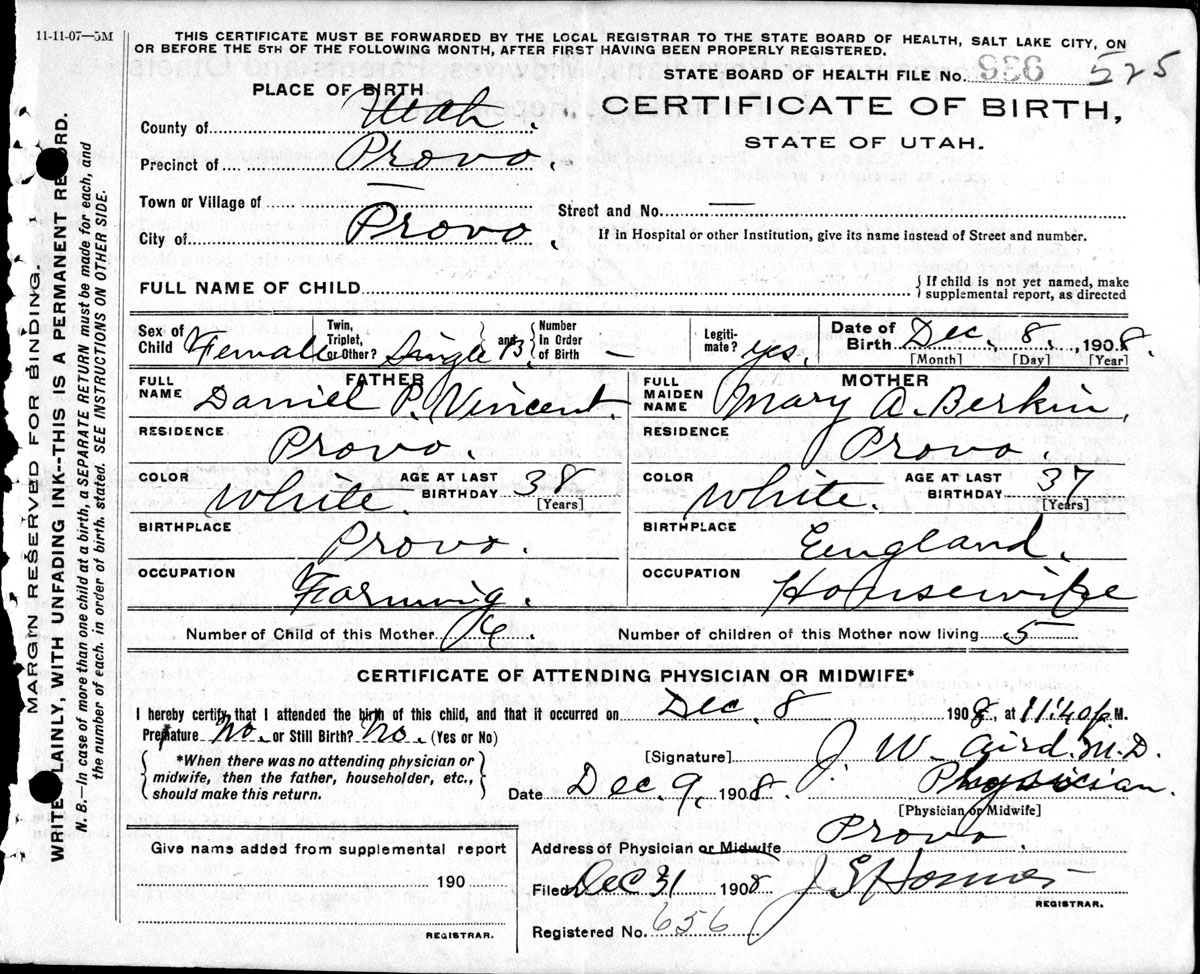 11-11-07—5M
THIS CERTIFICATE MUST BE FORWARDED BY THE LOCAL REGISTRAR TO THE STATE BOARD OF HEALTH, SALT LAKE CITY, ON
OR BEFORE THE 5TH OF THE FOLLOWING MONTH, AFTER FIRST HAVING BEEN PROPERLY REGISTERED.
STATE BOARD OF HEALTH FILE No. 525
PLACE OF BIRTH
CERTIFICATE OF BIRTH,
STATE OF UTAH.
County of Utah.
Precinct of Provo.
Town or Village of —
Street and No. —
City of Provo.
If in Hospital or other Institution, give its name instead of Street and number.
FULL NAME OF CHILD
{ If child is not yet named, make
supplemental report, as directed
Sex of Child Female Twin, Triplet, or Other? Single and Number In Order of Birth — Legiti-mate? yes. Date of Birth Dec. 8, 1908.
[Month] [Day] [Year]
FATHER
MOTHER
FULL NAME Daniel P. Vincent.
FULL MAIDEN NAME Mary A. Berkin.
RESIDENCE Provo.
RESIDENCE Provo.
COLOR White. AGE AT LAST BIRTHDAY 38 [Years]
COLOR White. AGE AT LAST BIRTHDAY 37 [Years]
BIRTHPLACE Provo.
BIRTHPLACE England.
OCCUPATION Farming.
OCCUPATION Housewife
Number of Child of this Mother 6.
Number of children of this Mother now living 5
CERTIFICATE OF ATTENDING PHYSICIAN OR MIDWIFE*
I hereby certify that I attended the birth of this child, and that it occurred on Dec. 8 1908, at 11:40 p M.
Premature No. or Still Birth? No. (Yes or No)
*When there was no attending physician or
midwife, then the father, householder, etc.,
should make this return.
[Signature] J. W. Aird. M.D.
Date Dec. 9, 1908. Physician.
[Physician or Midwife]
Address of Physician or Midwife Provo.
Give name added from supplemental report
190
REGISTRAR.
Filed Dec 31 1908 J E
REGISTRAR.
Registered No. 656
MARGIN RESERVED FOR BINDING.
WRITE PLAINLY, WITH UNFADING INK--THIS IS A PERMANENT RECORD.
N. B.—In case of more than one child at a birth, a SEPARATE RETURN must be made for each, and
the number of each, in order of birth, stated. SEE INSTRUCTIONS ON OTHER SIDE.